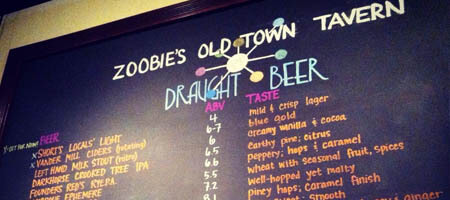 ZOOBIE'S OLD TOWN TAVERN
DRAUGHT BEER
BEER ABV TASTE
X SHORTS LOCALS' LIGHT 4 mild & crisp lager
X VANDER MILL CIDERS (rotating) 6-7 blue gold
LEFT HAND MILK STOUT (nitro) 6 creamy vanilla & cocoa
DARKHORSE CROOKED TREE IPA 6.5 Earthy pine; citrus
FOUNDERS RED'S RYE P.A. 6.6 Peppery; hops & caramel
EPHEMERE 5.5 Wheat with seasonal fruit, spices
7.2 Well-hopped yet malty
8.1 Piney hops; Caramel finish
Sweet · Smooth
ginger